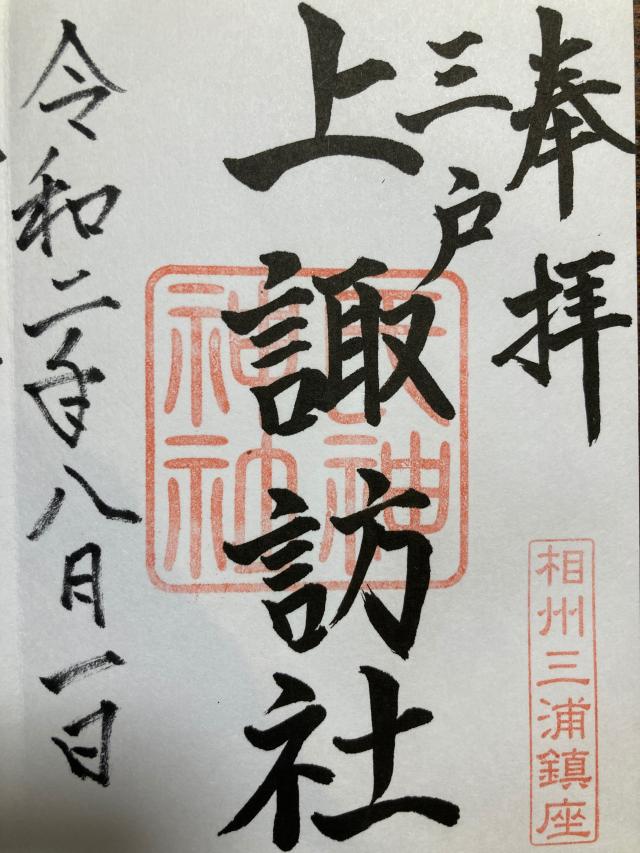 奉拝
相州三浦鎮座
三戸
上諏訪社
神
神社
令和二年八月一日